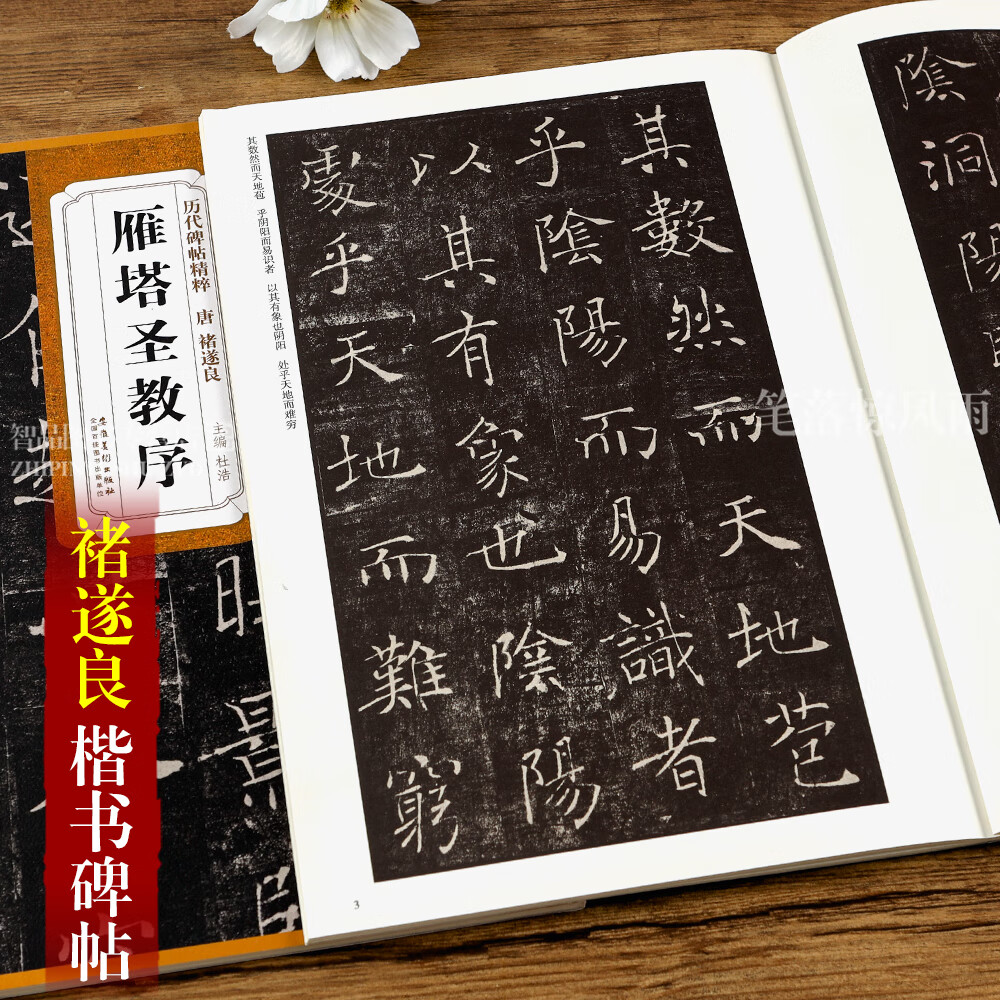 历代碑帖精粹 唐 褚遂良
雁塔圣教序
主编 杜浩
安徽美术出版社
全国百佳图书出版单位
褚遂良
楷书碑帖
其数然而天地苞 乎阴阳而易识者 以其有象也阴阳 处乎天地而难穷
其數然而天地苞
乎陰陽而易識者
以其有象也陰陽
處乎天地而難窮
3
陰洞陽
笔落惊风雨